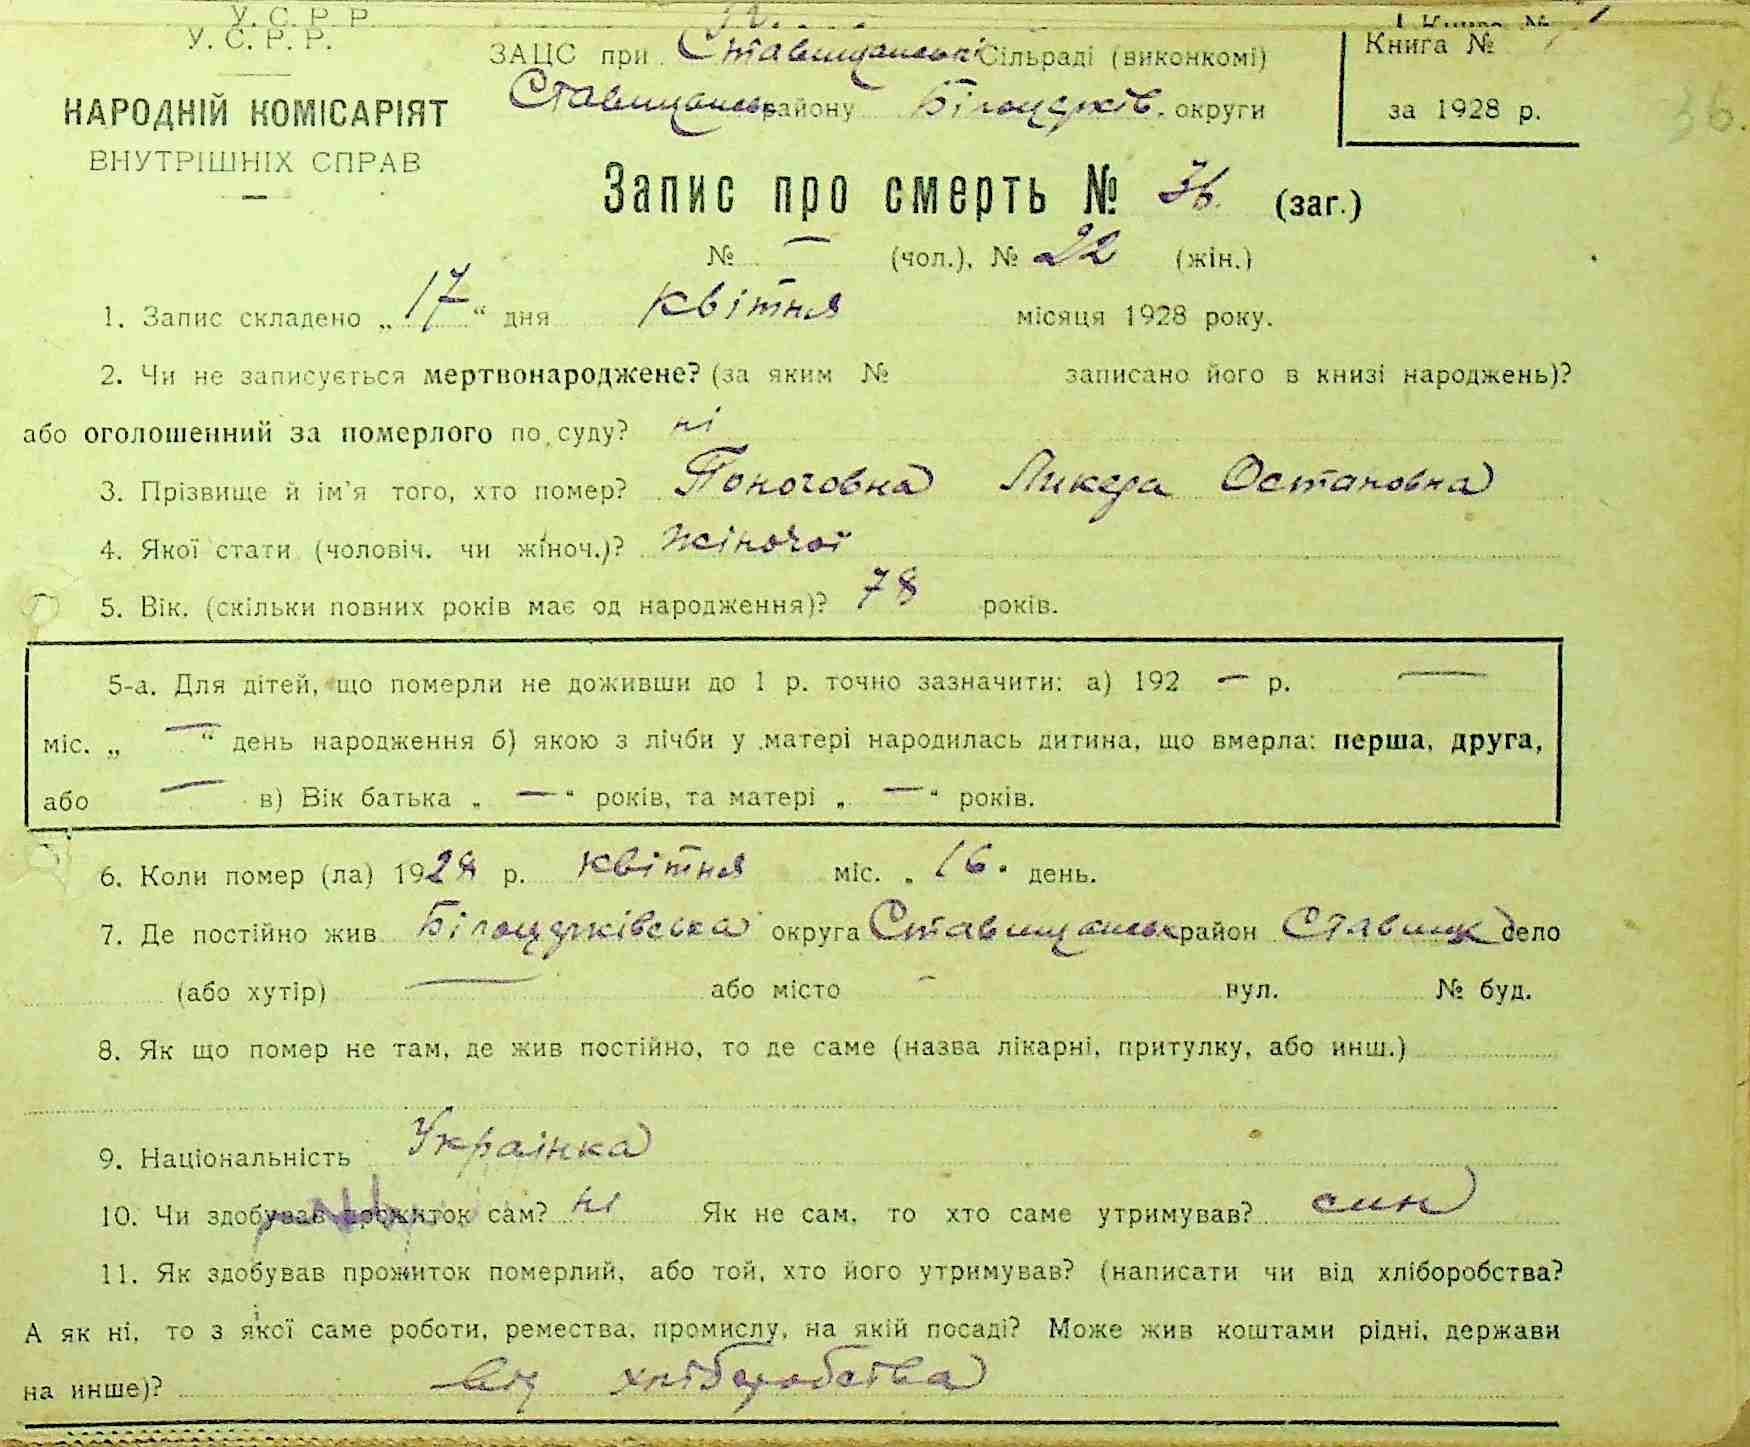 У. С. Р. Р.
У. С. Р. Р.
ЗАЦС при Ставищанські Сільраді (виконкомі)
Книга №
Ставищансь району Білоцерків. округи
за 1928 р.
36.
НАРОДНІЙ КОМІСАРІЯТ
ВНУТРІШНІХ СПРАВ
Запис про смерть № 36. (заг.)
№ — (чол.), № 22 (жін.)
1. Запис складено „ 17 “ дня квітня місяця 1928 року.
2. Чи не записується мертвонароджене? (за яким № записано його в книзі народжень)?
або оголошенний за померлого по суду? ні
3. Прізвище й ім’я того, хто помер? Поноговна Ликера Остановна
4. Якої стати (чоловіч. чи жіноч.)? жіночої
5. Вік. (скільки повних років має од народження)? 78 років.
5-а. Для дітей, що померли не доживши до 1 р. точно зазначити: а) 192 — р. —
міс. „ — “ день народження б) якою з лічби у матері народилась дитина, що вмерла: перша, друга,
або — в) Вік батька „ — “ років, та матері „ — “ років.
6. Коли помер (ла) 1928 р. квітня міс. „ 16 “ день.
7. Де постійно жив Білоцерківська округа Ставищанськ район Ставищ село
(або хутір) — або місто — вул. № буд.
8. Як що помер не там, де жив постійно, то де саме (назва лікарні, притулку, або инш.)
9. Національність Українка
10. Чи здобував прожиток сам? ні Як не сам, то хто саме утримував? син
11. Як здобував прожиток померлий, або той, хто його утримував? (написати чи від хліборобства?
А як ні, то з якої саме роботи, ремества, промислу, на якій посаді? Може жив коштами рідні, держави
на инше)? від хліборобства